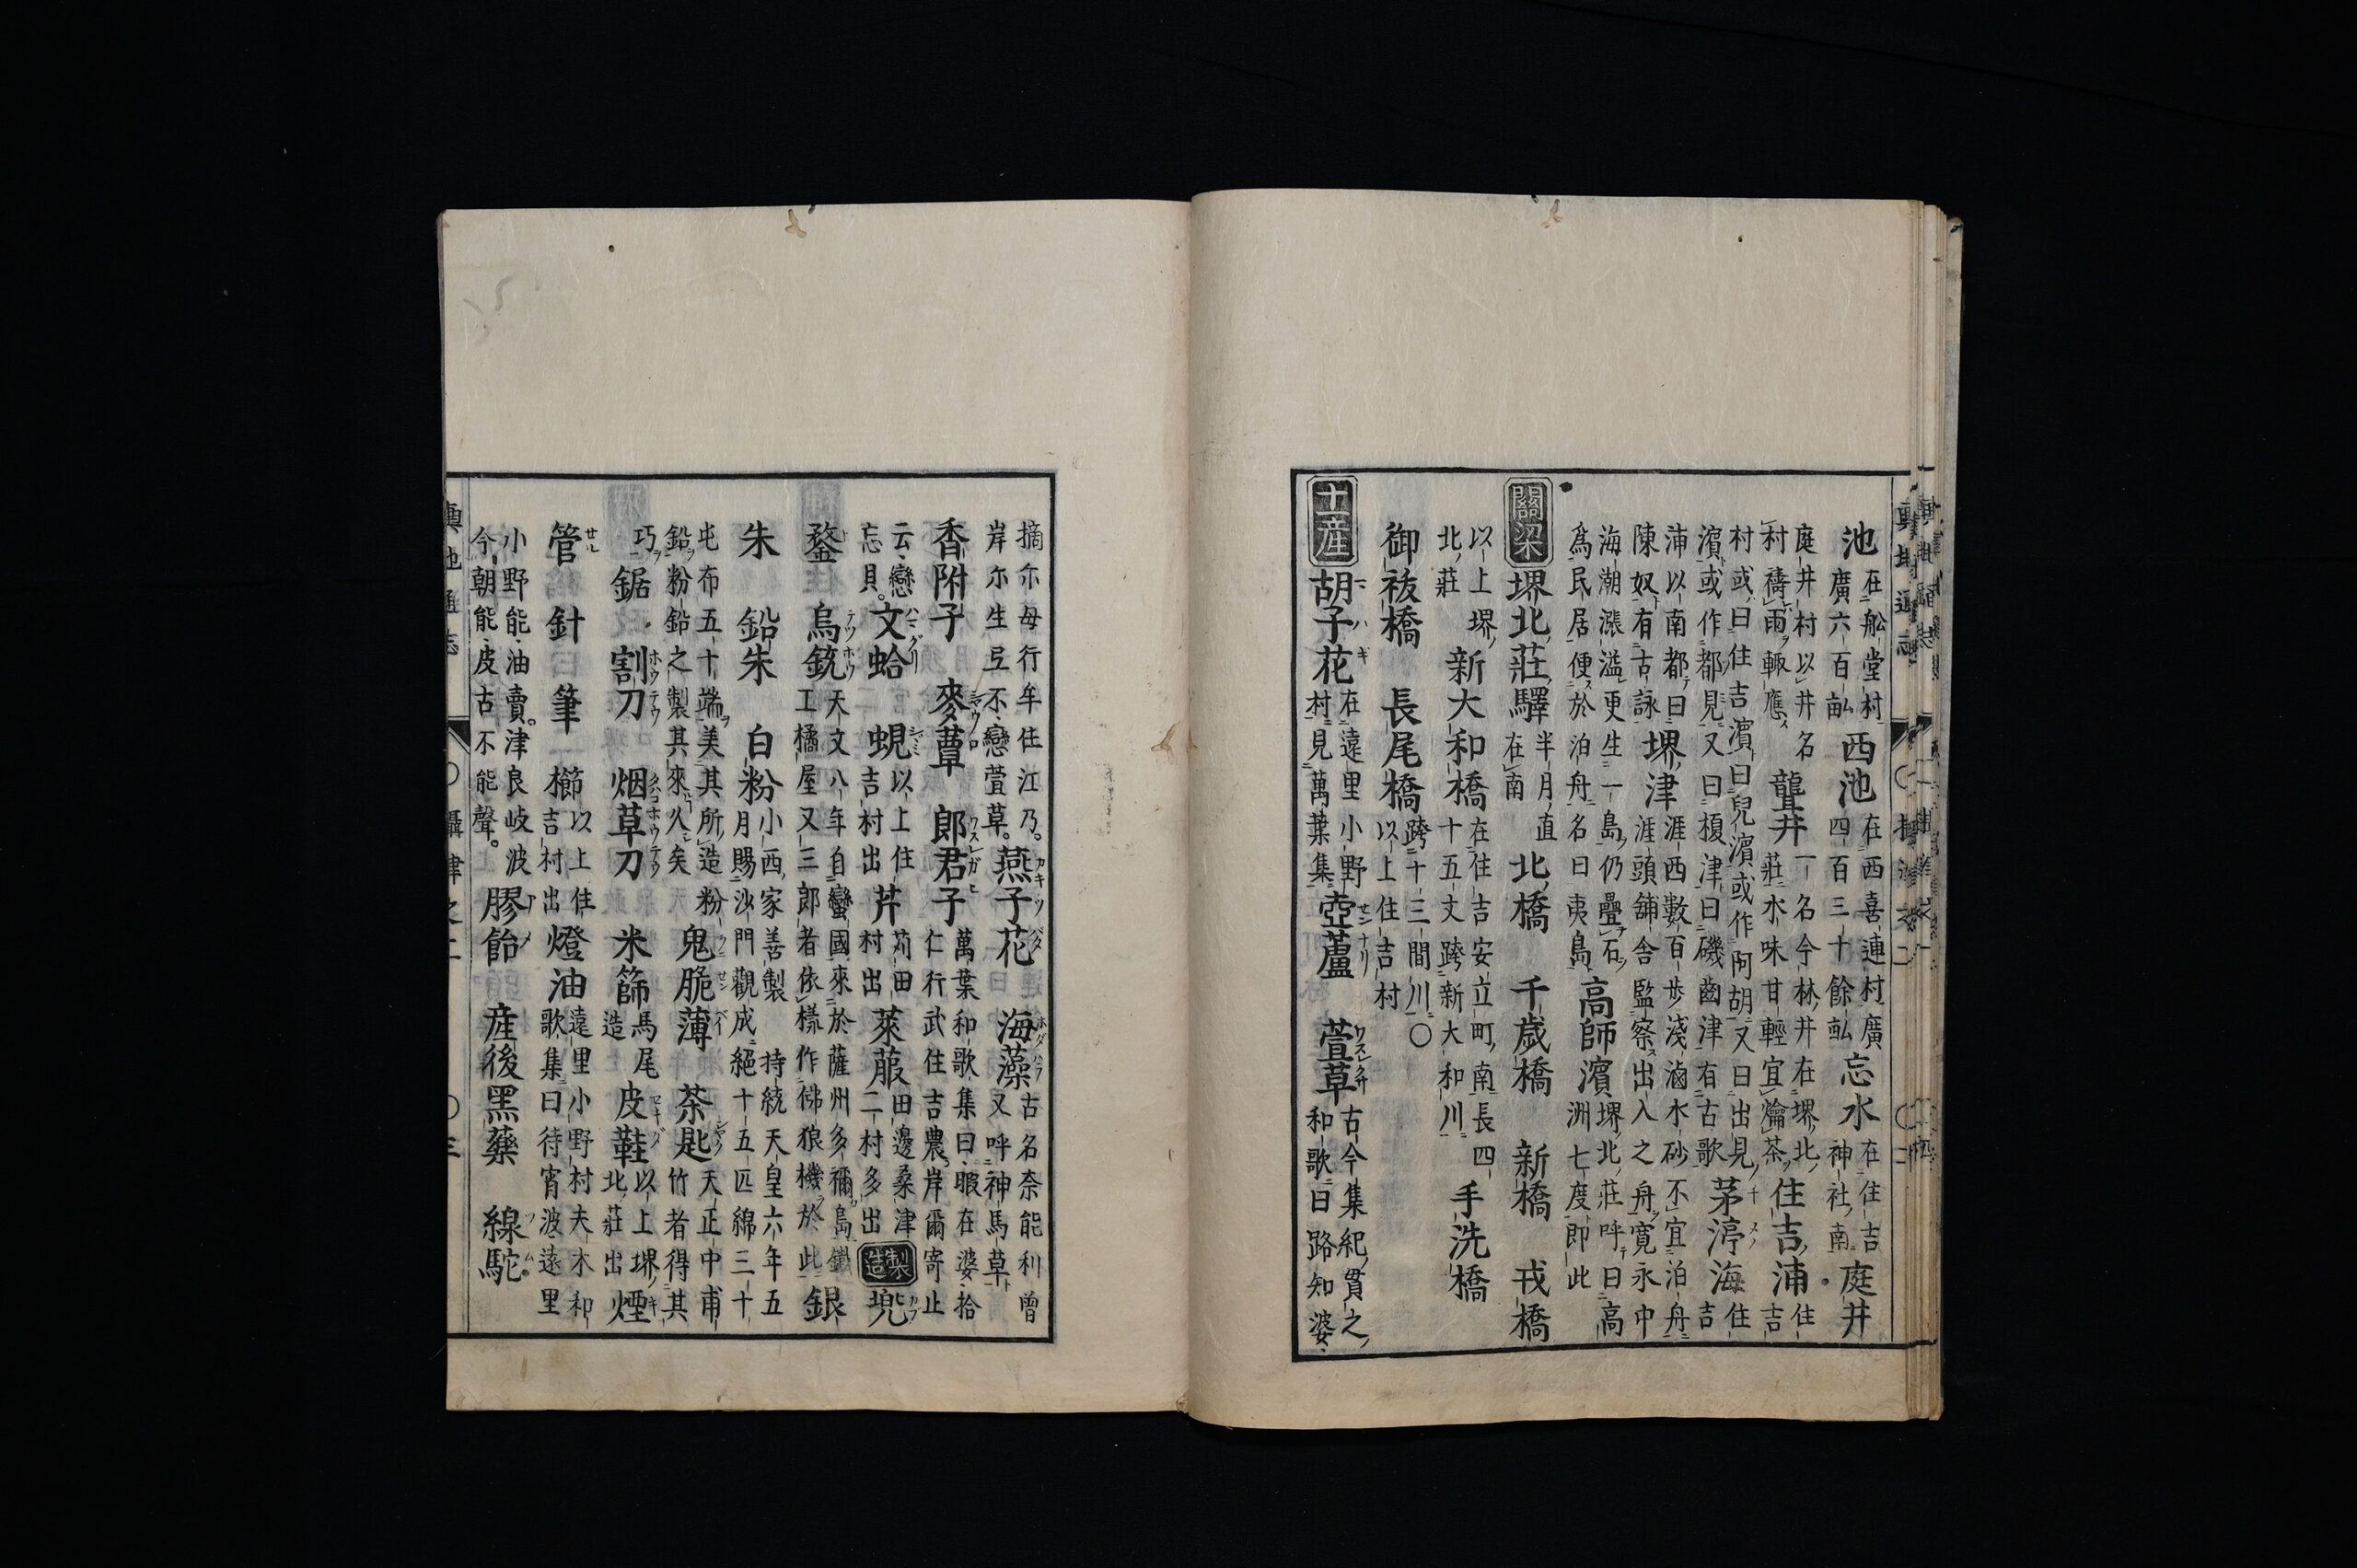 池 在船堂村 廣六百畝 西池 在西喜連村廣 四百三十餘畝 忘水 在住吉 神社南 庭井
庭井村以井名 村禱雨輙應 聾井 一名今林井在堺北 莊水味甘輕宜瀹茶 住吉浦 住 吉
村或曰住吉濱曰兒濱或作阿胡又曰出見 濱或作都見又曰榎津曰磯齒津有古歌 茅渟海 住 吉
浦以南都曰 陳奴有古詠 堺津 涯西數百步淺滷水砂不宜泊舟 涯頭舖舍監察出入之舟寬永中
海潮漲溢更生一島仍疊石 爲民居便於泊舟名曰夷島 高師濱 堺北莊呼曰高 洲七度即此
關梁 堺北莊驛 半月直 在南 北橋 千歲橋 新橋 戎橋
以上堺 北莊 新大和橋 在住吉安立町南長四 十五丈跨新大和川 手洗橋
御祓橋 長尾橋 跨十三間川 以上住吉村 〇
土產 胡子花 在遠里小野 村見萬葉集 壺蘆 萱草 古今集紀貫之 和歌曰路知婆
摘尓毎行牟住江乃 岸尓生弖不戀萱草 燕子花 海藻 古名奈能利曾 又呼神馬草
香附子 麥蕈 郎君子 萬葉和歌集曰暇在婆拾 仁行武住吉農岸爾寄止
云戀 忘貝 文蛤 蜆 以上住 吉村出 芹 苅田 村出 萊菔 田邊桑津 二村多出 製造 兜
鍪 烏銃 天文八年自蠻國來於薩州多禰島鐵 工橘屋又三郎者依樣作佛狼機於此 銀
朱 鉛朱 白粉 小西家善製 持統天皇六年五 月賜沙門觀成絕十五匹綿三十
屯布五十端美其所造粉 鉛粉鉛之製其來久矣 鬼脆薄 茶匙 天正中甫 竹者得其
巧 鋸 割刀 烟草刀 米篩 馬尾 造 皮鞋 以上堺 北莊出 煙
管 針 筆 櫛 以上住 吉村出 燈油 遠里小野村夫木和 歌集曰待宵波遠里
小野能油賣津良岐波 今朝能皮古不能聲 膠飴 產後黑藥 線駝